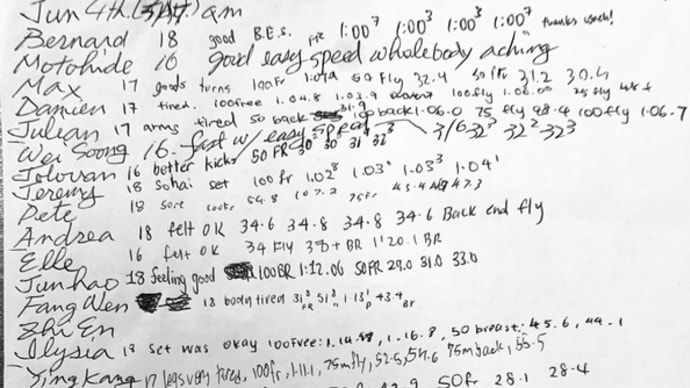 Jun 4th. (SAT.) am
Bernard 18 good B.E.S. FR 1:00⁷ 1:00³ 1:00³ 1:00⁷ thanks coach!
Motohide 16 good easy speed whole body aching
Max 17 good turns 100Fr 50 Fly 32.4 50 FR 31.2 30.4
Damien 17 tired. 100free 1.04.8 1.03.9 100fly 1.06.00 75 fly
Julian 17 arms tired 50 back 31.9 100back 1.06.0 75 fly 48.4 100fly 1.06.7
Wei Soong 16. fast w/ easy speed 3/6 32³ 32² 32³
Jolovan 16 better kicks 50 FR 30⁰ 30⁵ 31² 32³
Jeremy 18 Sohai set 100 fr 1.02⁸ 1.03⁰ 1.03³ 1.04¹
Pete 18 sore 59.8 1 07.2 75fr 47.3
Andrea 18 felt OK 34.6 34.8 34.8 34.6 Back end fly
Elle 16 felt OK 34 FLY BR 1'20.1 BR
Junhao 18 feeling good 100BR 1:12.06 50FR 29.0 31.0 33.0
Fang Wen 18 body tired 31² FR 51² 1.13¹ 43.4 BR
Zhi En
Ilysia 18 set was okay 100Free: 1.16.8, 50 breast: 45.6, 44.1
Ying Kang 17 legs very tired, 100fr, 1.11.1, 75m fly, 52.5, 75m back, 55.5
50fr 28.1 28.4